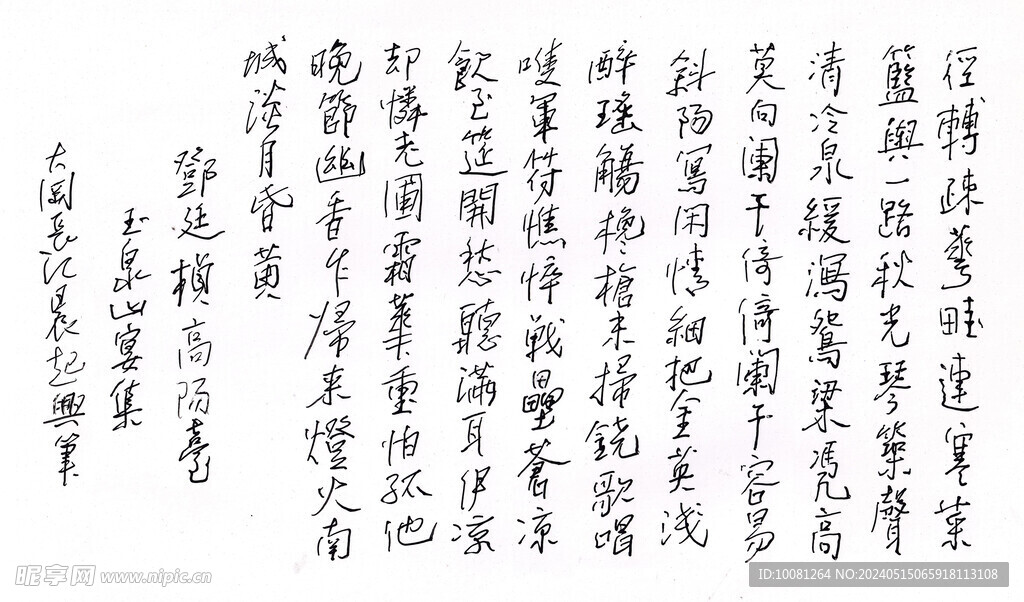 徑轉疎籬畦連寒菜
籃輿一路秋光琴築聲
清冷泉緩瀉鴛梁憑高
莫向闌干倚倚闌干容易
斜陽寫閑情細把金英淺
醉瑤觴欃槍未掃鐃歌唱
嘆軍符憔悴戰壘蒼涼
飲至筵開愁聽滿耳伊涼
却憐老圃霜華重怕孤他
晚節幽香乍歸来燈火南
城淡月昏黄
鄧廷楨高陽臺
玉泉山宴集
大岡長江晨起興筆
昵享网 www.nipic.cn
ID:10081264 NO:20240515065918113108